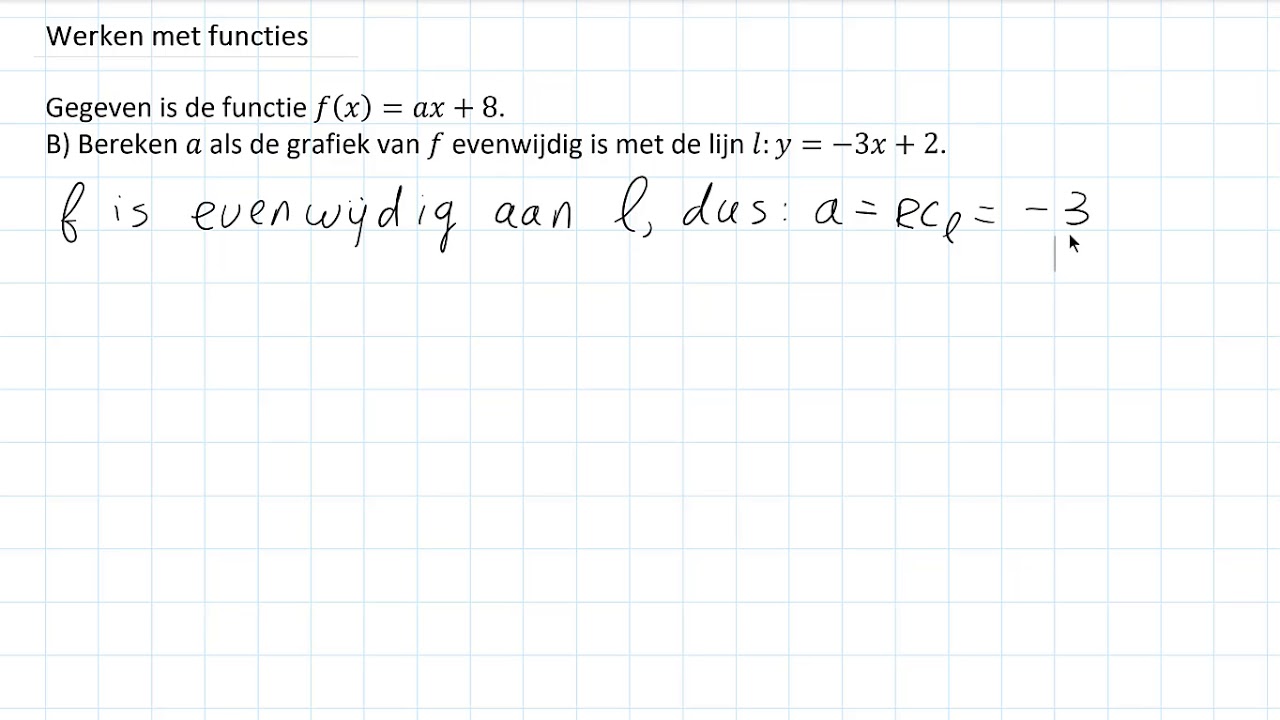 Werken met functies
Gegeven is de functie f(x) = ax + 8.
B) Bereken a als de grafiek van f evenwijdig is met de lijn l: y = −3x + 2.
f is evenwijdig aan l, dus: a = RCl = -3